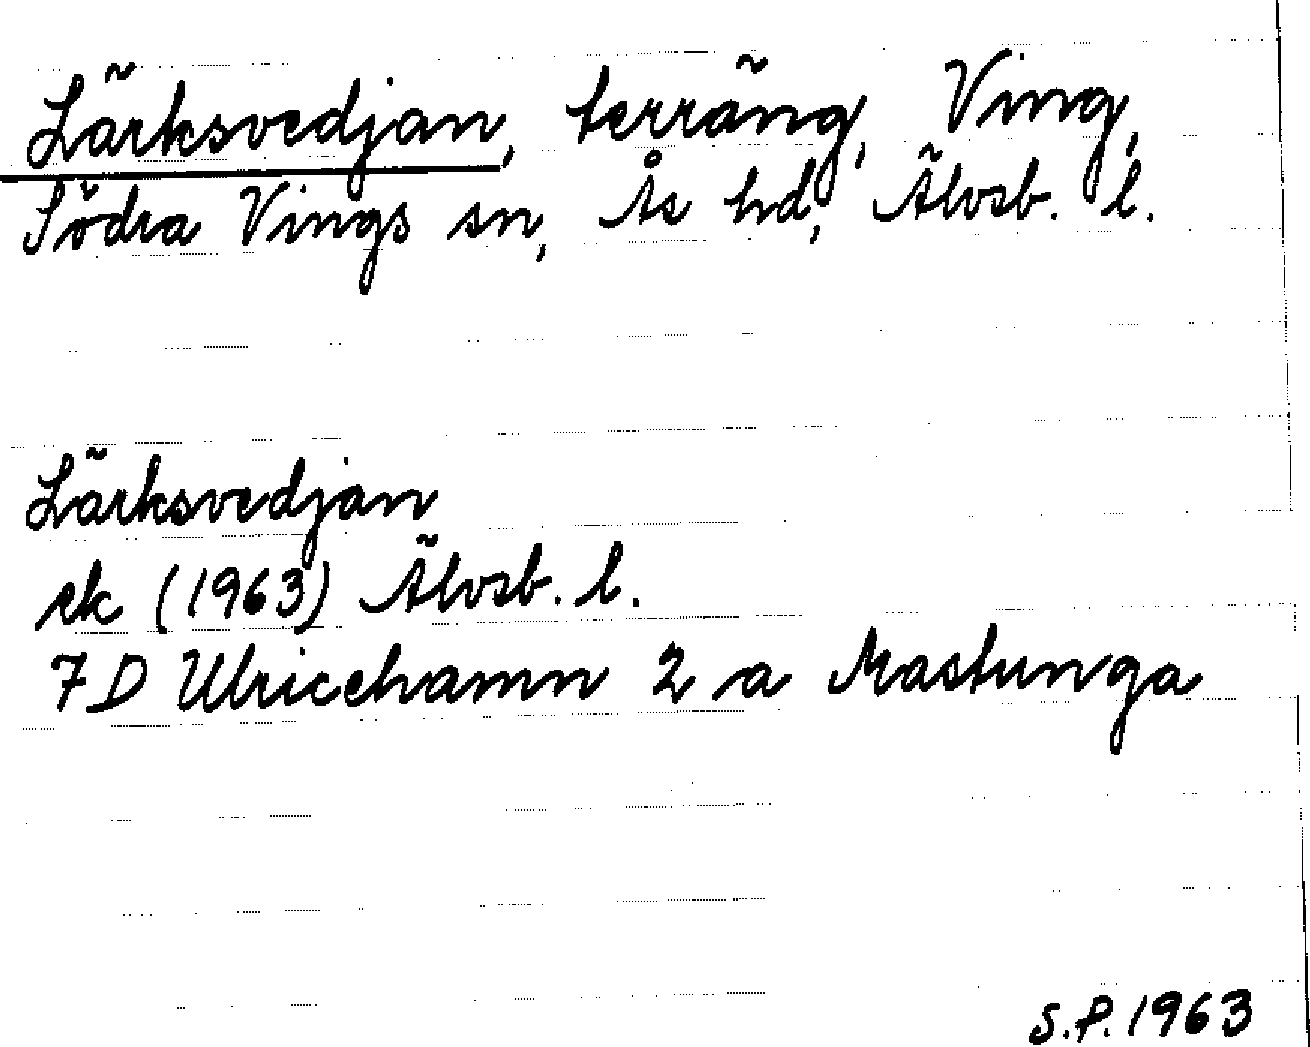 Lärksvedjan, terräng, Ving,
Södra Vings sn, Ås hd, Älvsb. l.
Lärksvedjan
ek (1963) Älvsb. l.
7 D Ulricehamn 2 a Mastunga
S.P. 1963